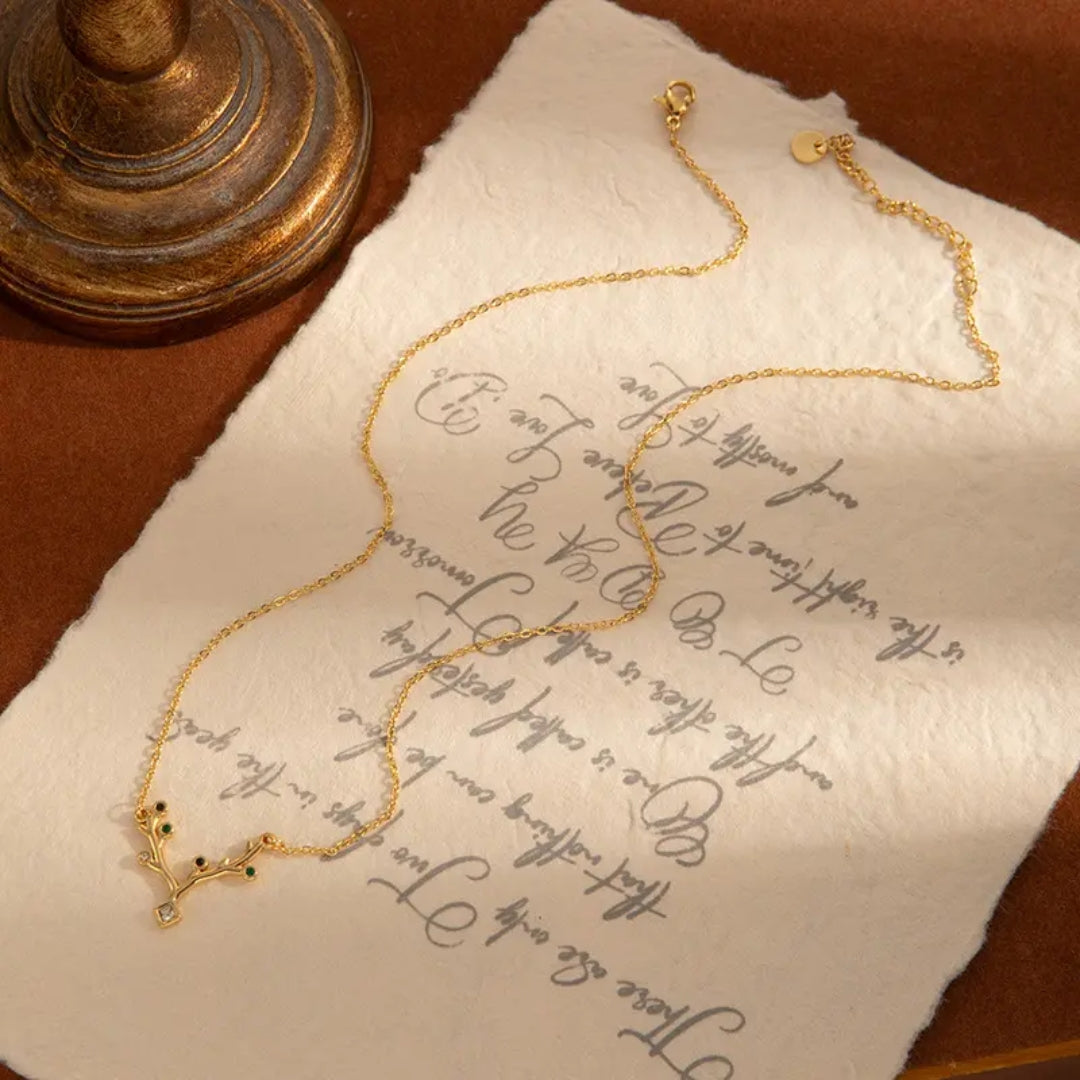 There are only Two days in the year
that nothing can be
One is called yesterday
and the other is Tomorrow
is the right time to Believe Love Do
and mostly to Love